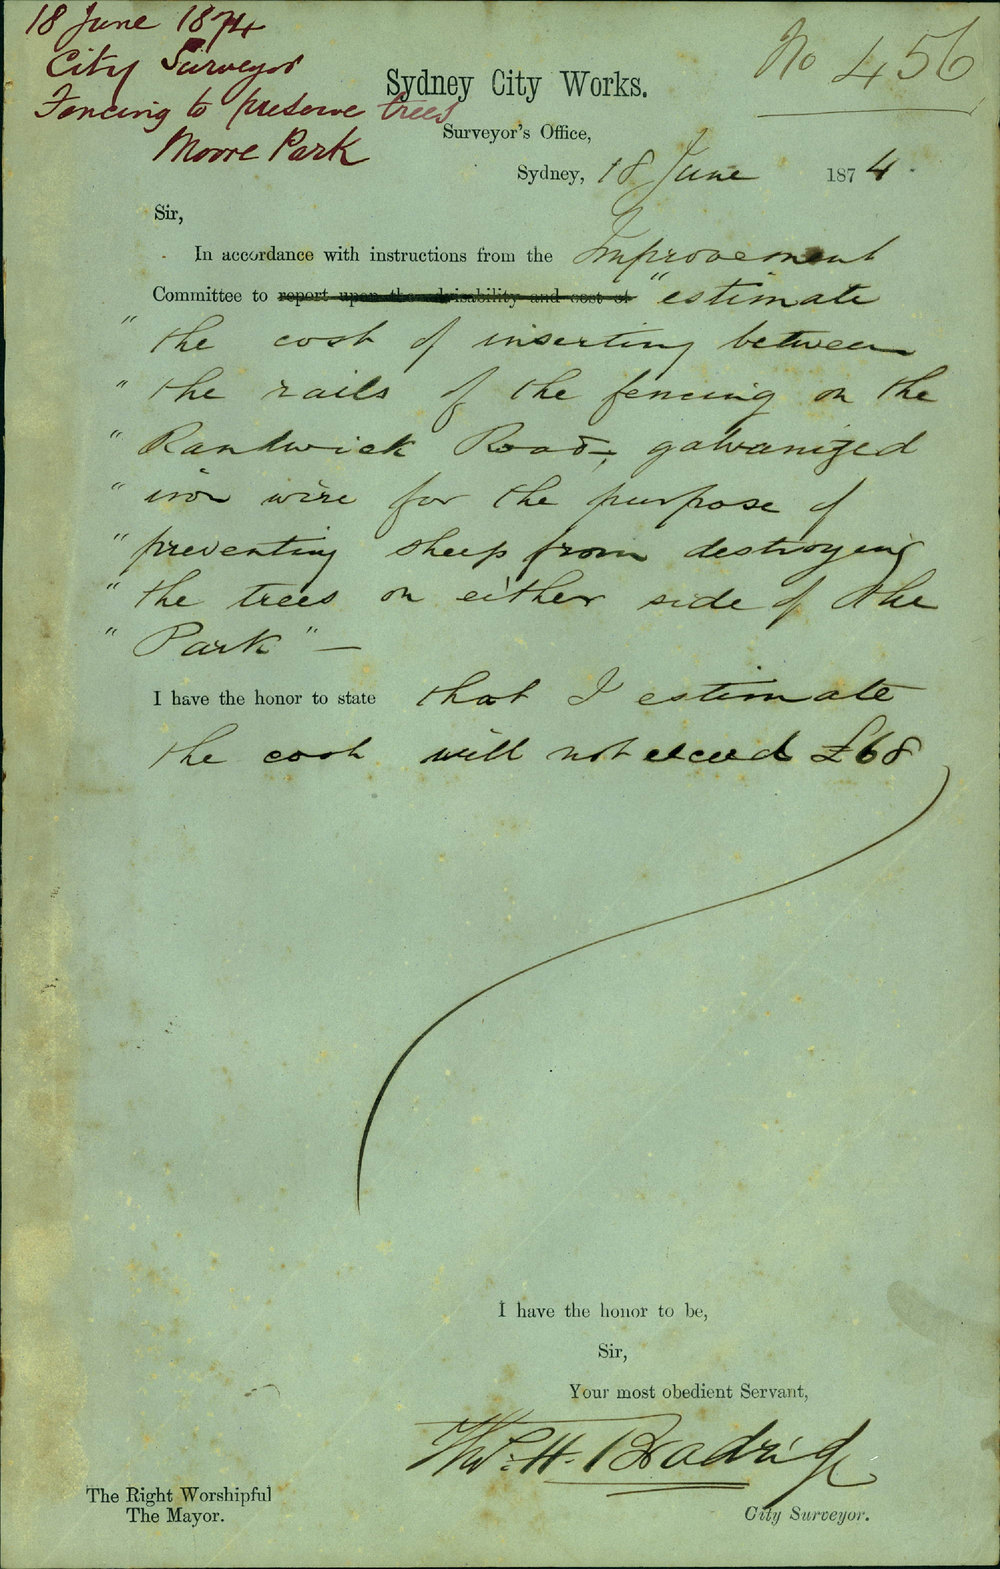 18 June 1874
City Surveyor
Fencing to preserve trees
Moore Park
No 456
Sydney City Works.
Surveyor's Office,
Sydney, 18 June 1874.
Sir,
In accordance with instructions from the Improvement
Committee to report upon the advisability and cost of "estimate
" the cost of inserting between
" the rails of the fencing on the
" Randwick Road, galvanized
" iron wire for the purpose of
" preventing sheep from destroying
" the trees on either side of the
" Park" —
I have the honor to state that I estimate
the cost will not exceed £68
I have the honor to be,
Sir,
Your most obedient Servant,
Thos. H. Bradridge
City Surveyor.
The Right Worshipful
The Mayor.